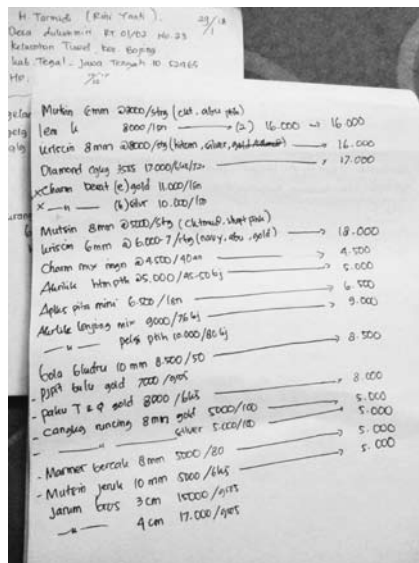 H. Tarmudi (Rohi Yanti). 29/18
Desa dukuhmin RT 01/02 No. 23 1
Kelurahan Tuwel, kec. Bojong
kab. Tegal - Jawa Tengah 10 52465
Hp.
Mutsin 6mm @8000/strg (cklt, abu, pth)
lem U 8000/lsn → (2) 16.000 → 16.000
kriscin 8mm @8000/strg (hitam, silver, gold) → 16.000
Diamond 3555 17.000 → 17.000
x Charm besat (e) gold 11.000/lsn
x —"— (k) silvr 10.000/lsn
Mutsin 8mm @5000/strg (cklt mud, pink)
kriscin 6mm @ 6.000-7/strg (navy, abu, gold) → 18.000
Charm mix ingn @4.500/40an → 4.500
Akrilik htm pth 25.000/45-50 bj → 5.000
Aplus pita mini 6.500/lsn → 6.500
Akrilik lonjong mix 9000/76 bj → 9.000
—"— pelgi ptih 10.000/80 bj
bola bludru 10 mm 8.500/50 → 8.500
- bulu gold 7000/grss
- paku T & 9 gold 8000/6ks → 8.000
- cangkg runcing 8mm gold 5000/100 → 5.000
- —"— silver 5.000/100 → 5.000
- Marmer bercak 8mm 5000/80 → 5.000
- Mutsin jeruk 10 mm 5000/6ks → 5.000
Jarum bros 3 cm 15000/grss
—"— 4 cm 17.000/grss